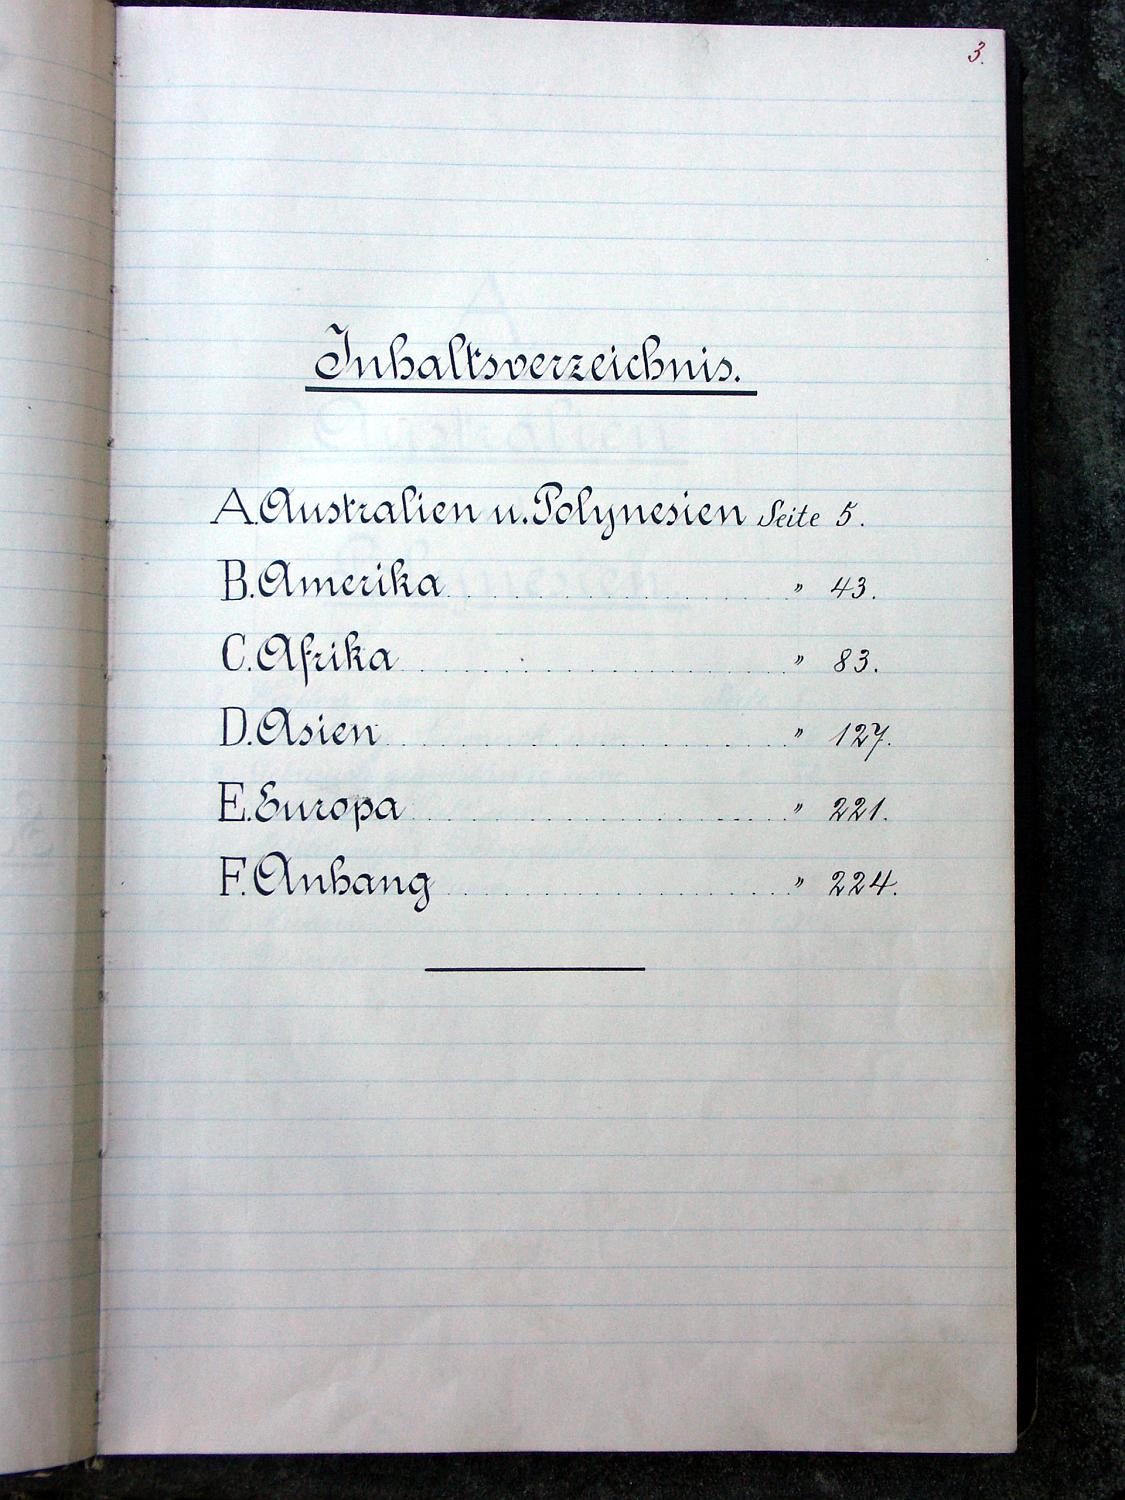 3.
Inhaltsverzeichnis.
A. Australien u. Polynesien Seite 5.
B. Amerika . . . . . . . . . . . . . . . " 43.
C. Afrika . . . . . . . . . . . . . . . . " 83.
D. Asien . . . . . . . . . . . . . . . . . " 127.
E. Europa . . . . . . . . . . . . . . . . " 221.
F. Anhang . . . . . . . . . . . . . . . " 224.